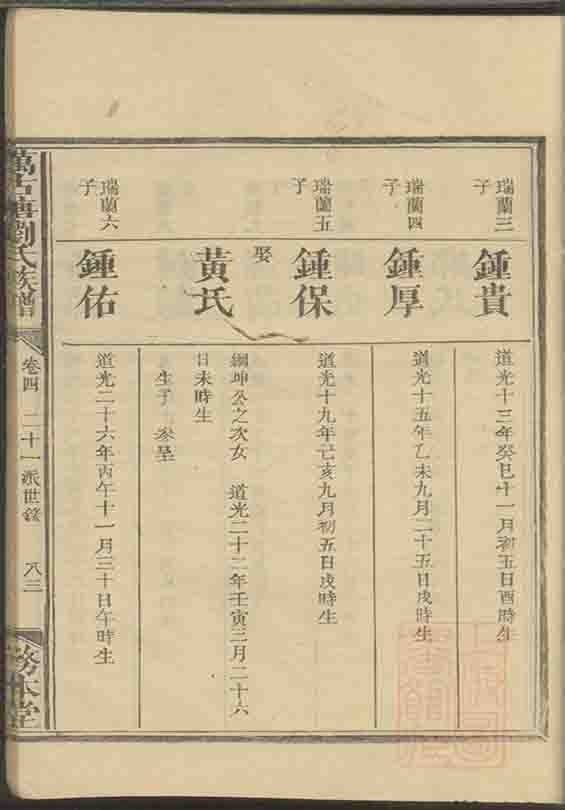 瑞蘭三
子
鍾貴
道光十三年癸巳十一月初五日酉時生
瑞蘭四
子
鍾厚
道光十五年乙未九月二十五日戌時生
瑞蘭五
子
鍾保
道光十九年己亥九月初五日戌時生
娶
黃氏
綱坤公之次女 道光二十二年壬寅三月二十六
日未時生
生子
瑞蘭六
子
鍾佑
道光二十六年丙午十一月三十日午時生
萬古塘劉氏族譜
卷四 二十一派世錄
八三
務本堂